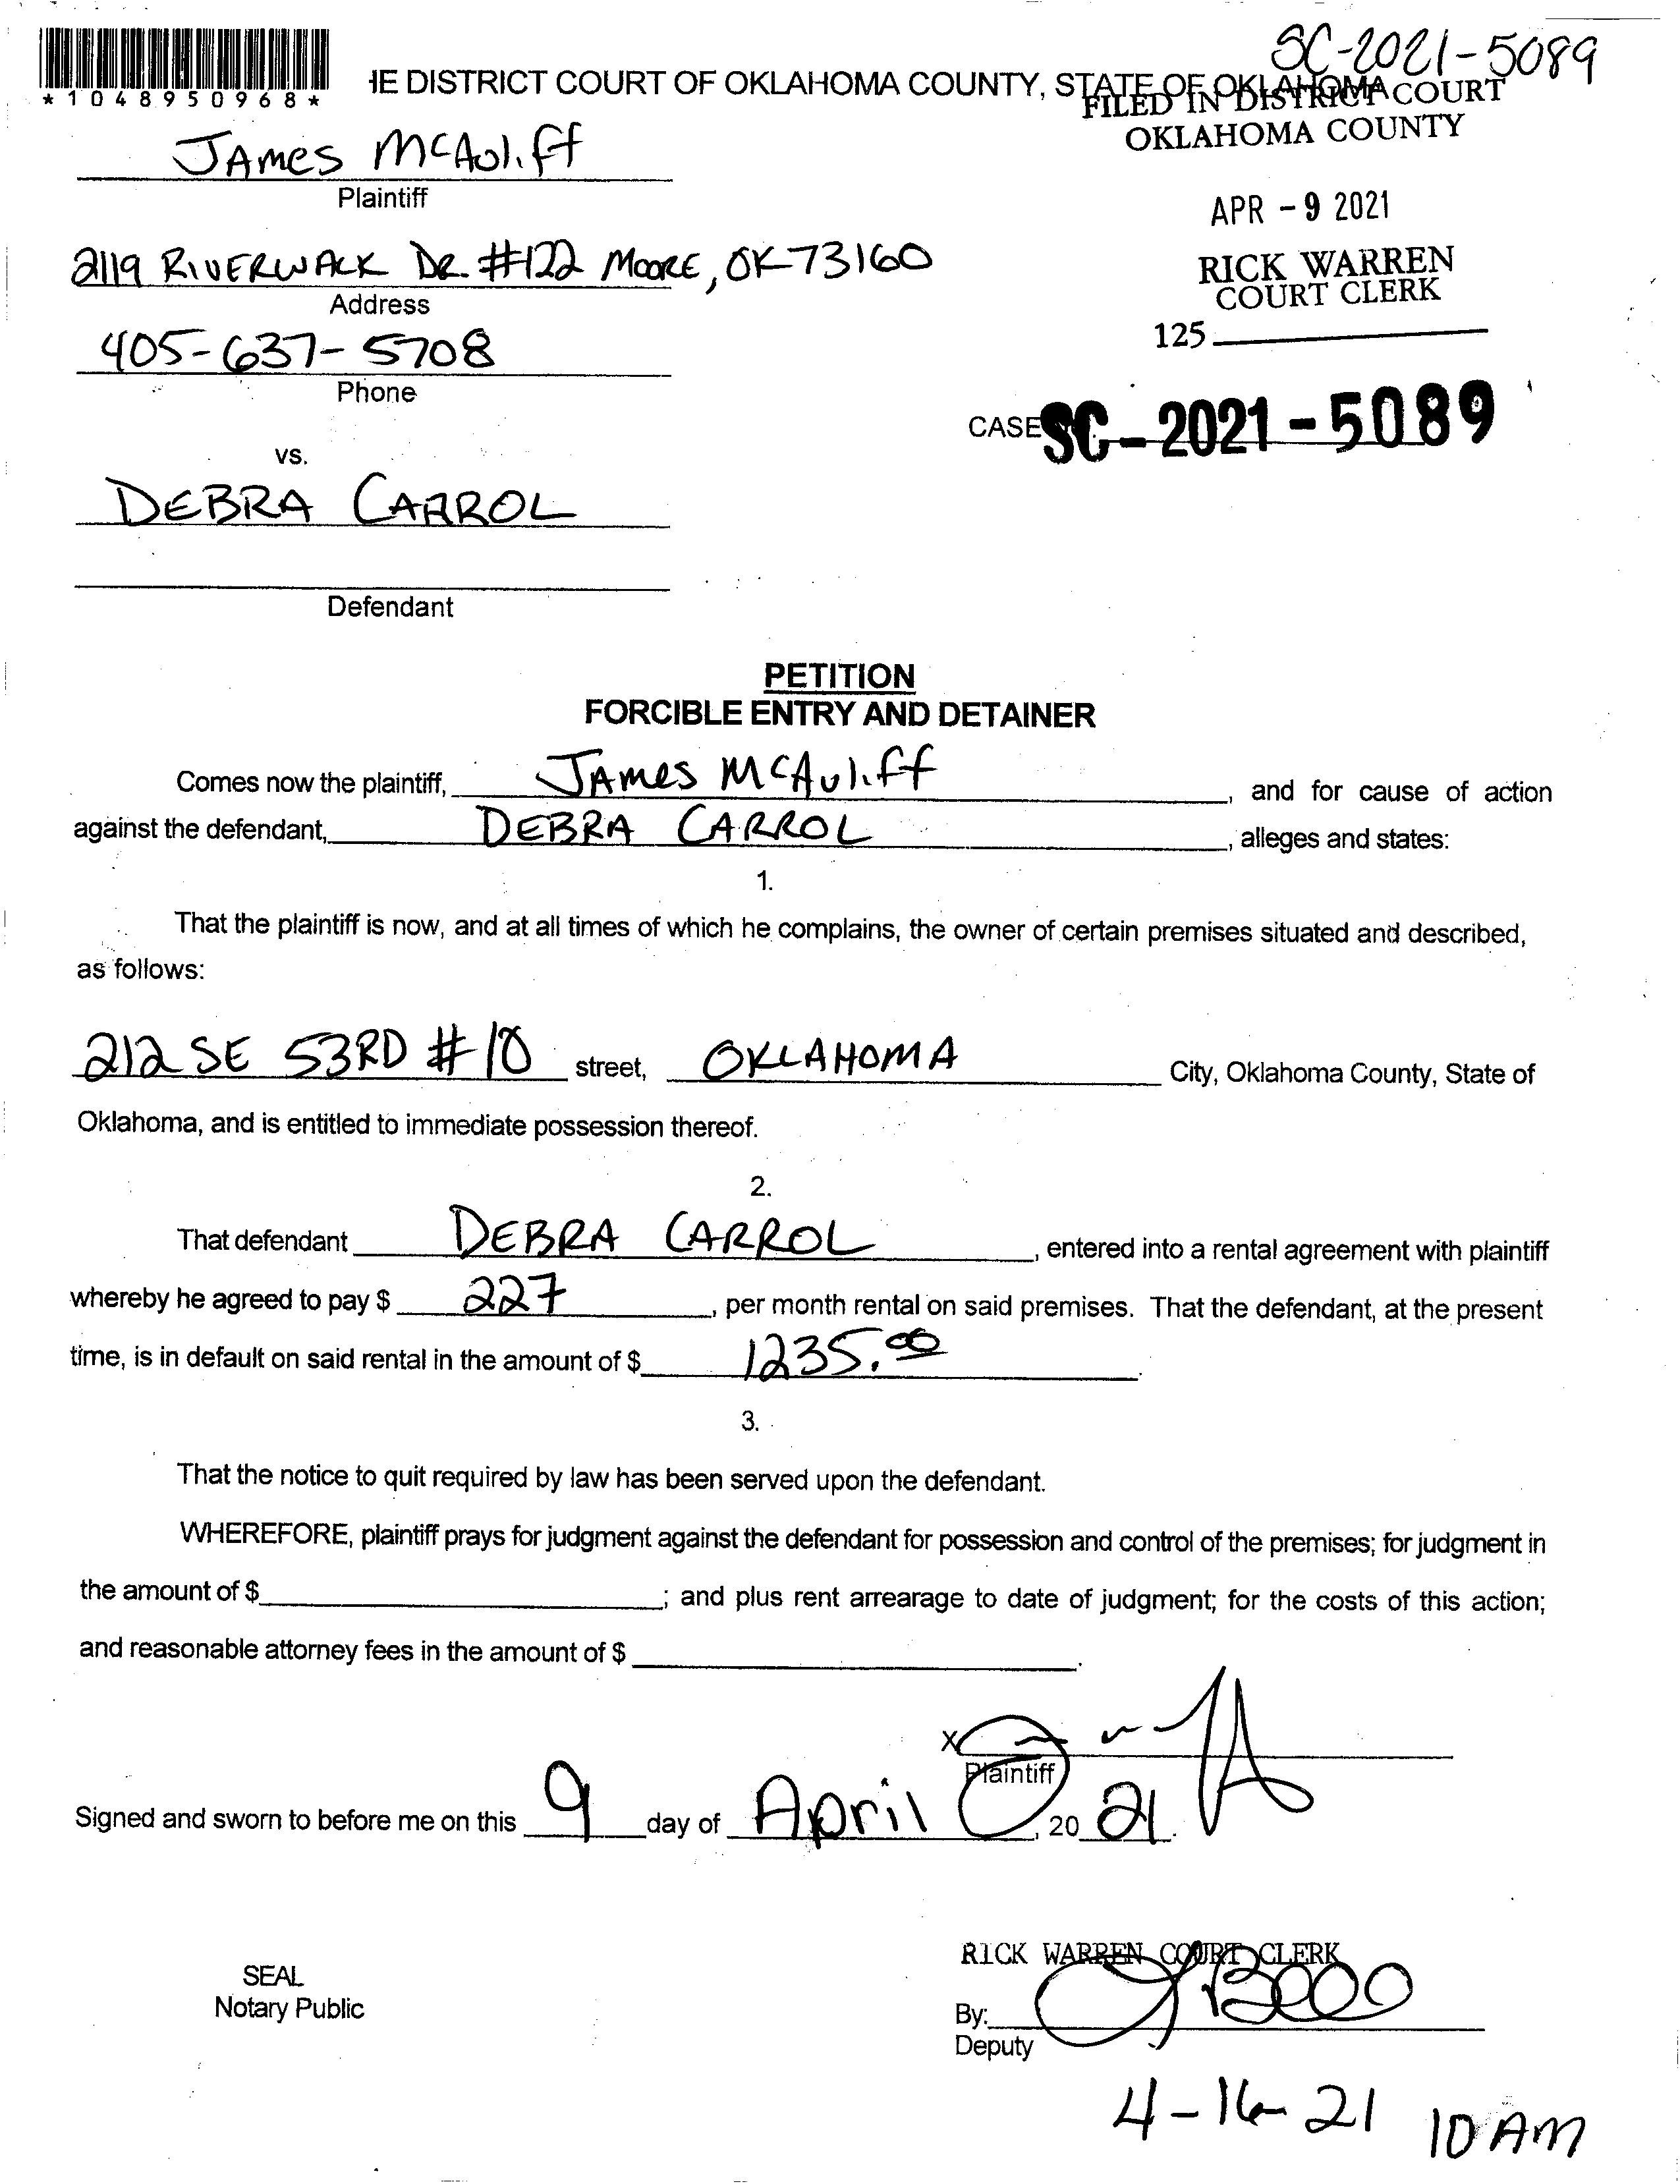 SC-2021-5089
*1048950968*
IE DISTRICT COURT OF OKLAHOMA COUNTY, STATE OF OKLAHOMA
FILED IN DISTRICT COURT
OKLAHOMA COUNTY
JAMES McAuliff
Plaintiff
APR - 9 2021
2119 RIVERWALK DR. #122 MOORE, OK 73160
Address
RICK WARREN
COURT CLERK
405-637-5708
Phone
125
CASE SC - 2021 - 5089
vs.
DEBRA CARROL
Defendant
PETITION
FORCIBLE ENTRY AND DETAINER
Comes now the plaintiff, JAMES McAuliff, and for cause of action
against the defendant, DEBRA CARROL, alleges and states:
1.
That the plaintiff is now, and at all times of which he complains, the owner of certain premises situated and described,
as follows:
212 SE 53RD #10 street, OKLAHOMA City, Oklahoma County, State of
Oklahoma, and is entitled to immediate possession thereof.
2.
That defendant DEBRA CARROL, entered into a rental agreement with plaintiff
whereby he agreed to pay $ 227, per month rental on said premises. That the defendant, at the present
time, is in default on said rental in the amount of $ 1235.00.
3.
That the notice to quit required by law has been served upon the defendant.
WHEREFORE, plaintiff prays for judgment against the defendant for possession and control of the premises; for judgment in
the amount of $; and plus rent arrearage to date of judgment; for the costs of this action;
and reasonable attorney fees in the amount of $.
X
Plaintiff
Signed and sworn to before me on this 9 day of April, 20 21.
RICK WARREN COURT CLERK
SEAL
Notary Public
By:
Deputy
4-16-21 10 AM